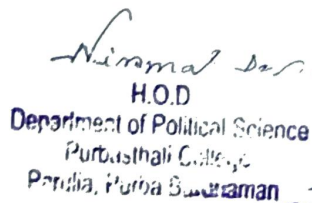 Nirmal Das.
H.O.D
Department of Political Science
Purbasthali College
Parulia, Purba Bardhaman